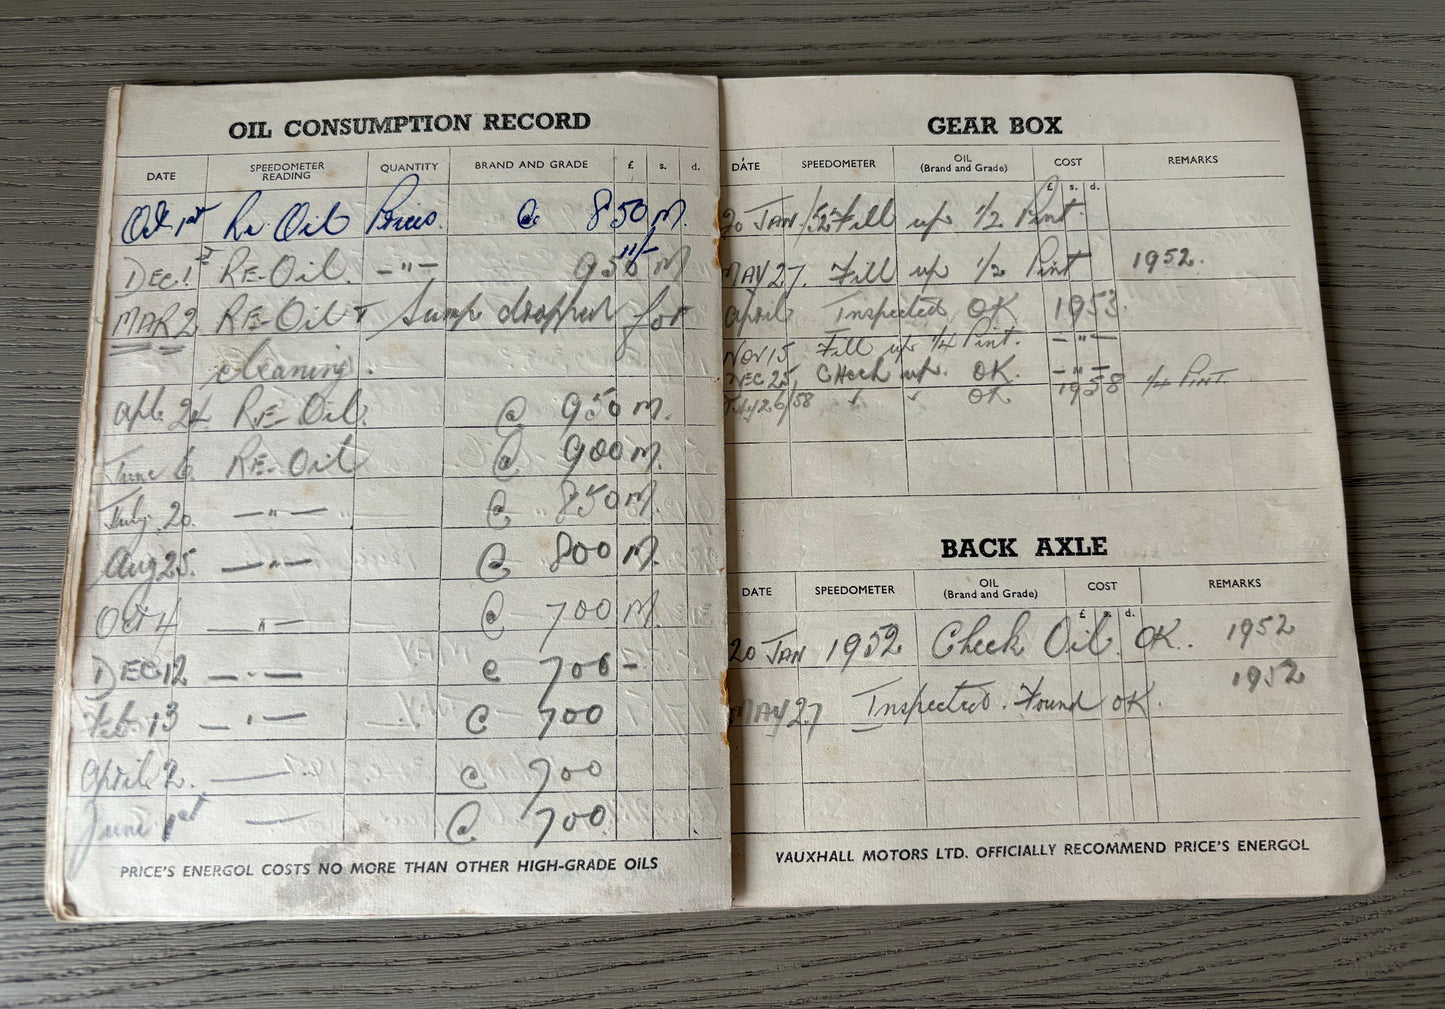 OIL CONSUMPTION RECORD
DATE SPEEDOMETER READING QUANTITY BRAND AND GRADE £ s. d.
Oct 1st Re Oil Prices. @ 850 M.
11/-
DEC. 1st RE-Oil. —"— 950 M
MAR 2 RE-Oil & Sump dropped for
cleaning.
Aple 24 RE-Oil. @ 950 M.
June 6. RE-Oil @ 900 M.
July. 20. —"— @ 850 M.
Aug 25. —"— @ 800 M.
Oct 4 —"— @ 700 M.
DEC 12 —"— @ 700 -
Feb 13 —"— @ 700
April 2. — @ 700
June 1st — @ 700.
PRICE'S ENERGOL COSTS NO MORE THAN OTHER HIGH-GRADE OILS
GEAR BOX
DATE SPEEDOMETER OIL (Brand and Grade) COST REMARKS
£ s. d.
20 JAN/52 Fill up 1/2 Pint.
MAY 27. Fill up 1/2 Pint 1952.
April Inspected OK 1953.
NOV 15 Fill up 1/4 Pint. —"—
DEC 25, CHeck up. OK. —"—
26/58 " " OK 1958 1/4 PINT.
BACK AXLE
DATE SPEEDOMETER OIL (Brand and Grade) COST REMARKS
£ s. d.
20 JAN 1952 Check Oil. OK. 1952
MAY 27 Inspected. Found OK. 1952
VAUXHALL MOTORS LTD. OFFICIALLY RECOMMEND PRICE'S ENERGOL